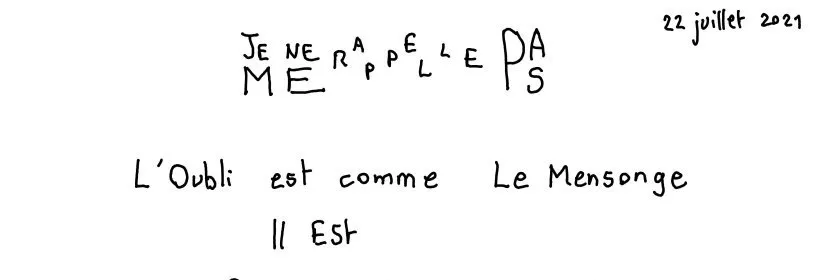 22 juillet 2021
JE NE ME RAPPELLE PAS
L'Oubli est comme Le Mensonge
Il Est